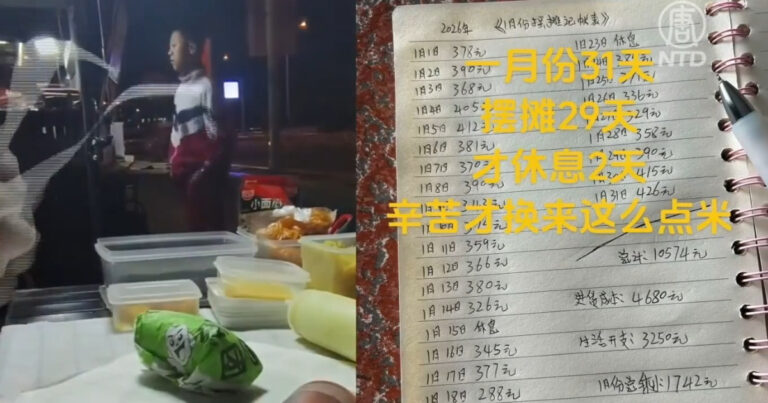 小面
2026年 《1月份摆摊记账表》
1月1日 378元
1月2日 390元
1月3日 368元
1月4日 405
1月5日 412
1月6日 381元
1月7日 370
1月8日 390
1月11日 359元
1月12日 366元
1月13日 380元
1月14日 326元
1月15日 休息
1月16日 345元
1月17日 377元
1月18日 288元
1月23日 休息
1月26日 336元
29元
1月28日 358元
390元
415元
1月31日 426元
总计：10574元
进货成本：4680元
生活开支：3250元
1月份总剩：1742元
一月份31天
摆摊29天
才休息2天
辛苦才换来这么点米
唐
NTD